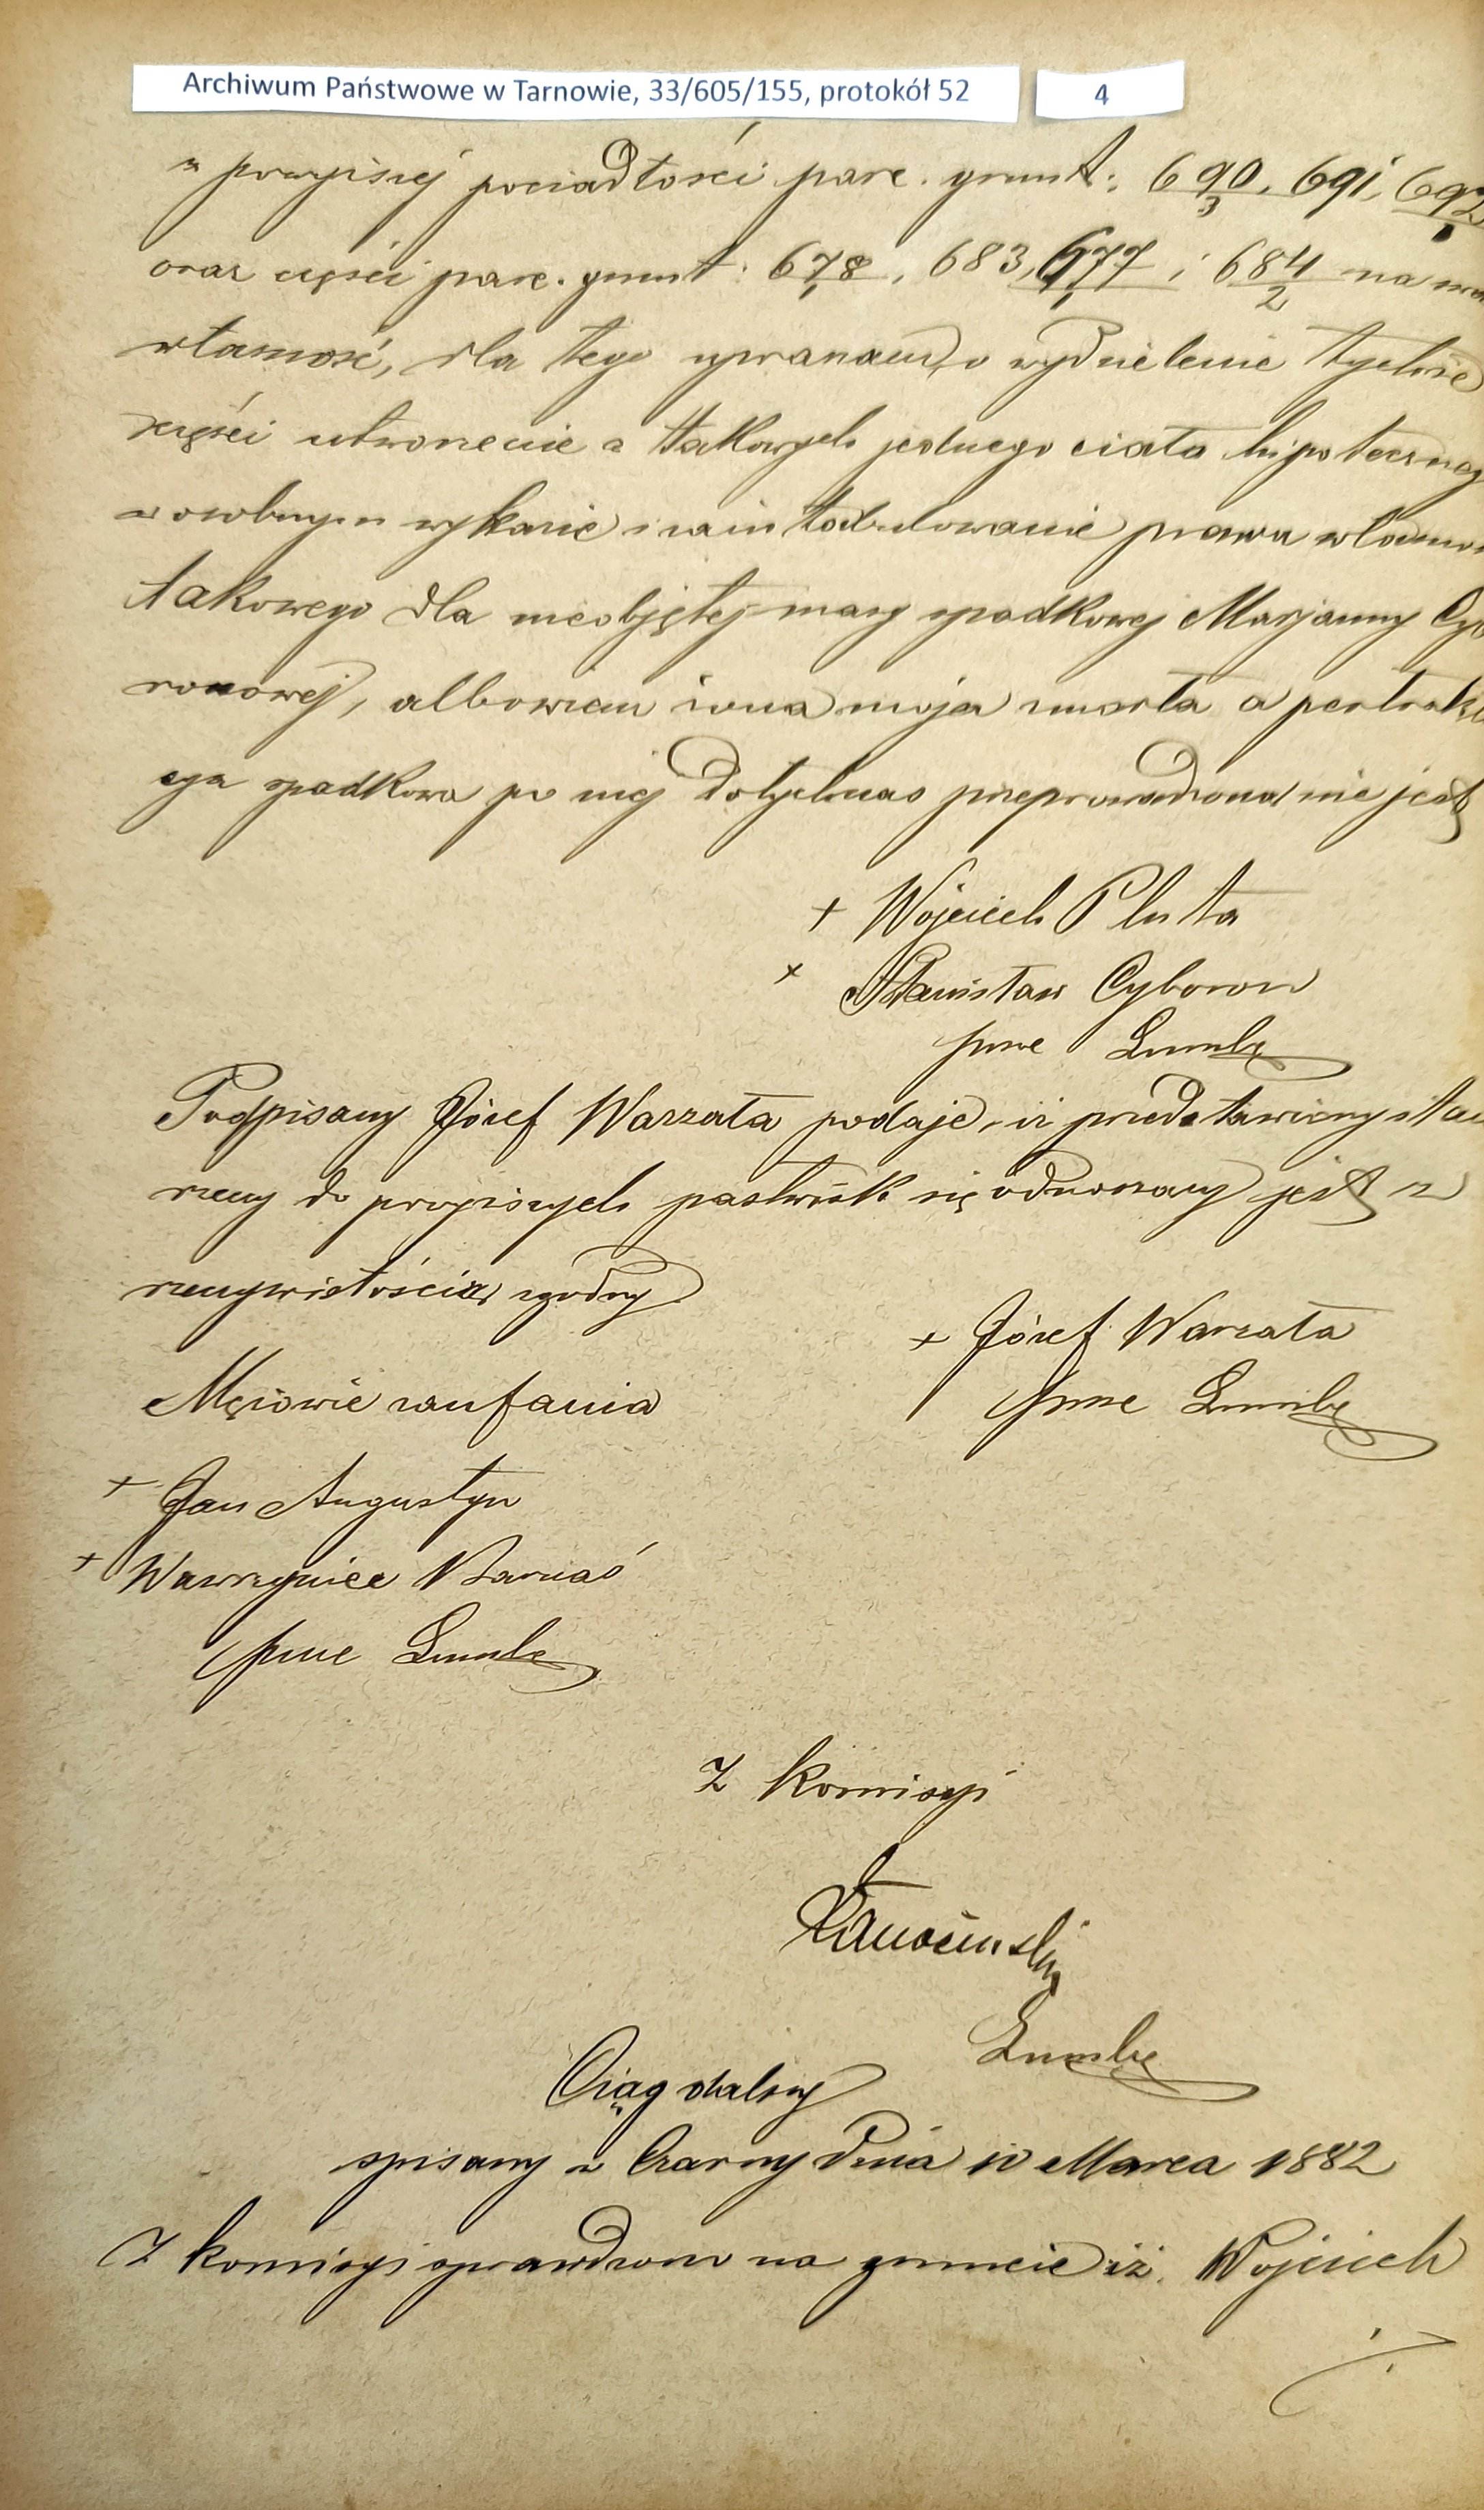 Archiwum Państwowe w Tarnowie, 33/605/155, protokół 52
4
z powyższej posiadłości parc. grunt: 690/3, 691, 692/1
oraz części parc. grunt: 678/1, 683, 677/1 i 684/2 na
własność, dla tego upraszam o wydzielenie tychże
części utworzenie z takowych jednego ciała hipoteczneg
w osobnym wykazie i zaintabulowanie prawa własnoś
takowego dla nieobjętej masy spadkowej Marjanny Cyb
ronowej, albowiem żona moja umarła a pertrakta
cya spadkowa po niej dotychczas przeprowadzona nie jest
+ Wojciech Pluta
+ Stanisław Cyboron
pzne
Podpisany Józef Warzała podaje, iż przedstawiony stan
rzeczy do powyższych pastwisk się odnoszący jest z
rzeczywistością zgodny
+ Józef Warzała
pzne
Mężowie zaufania
+ Jan Augustyn
+ Wawrzyniec Banaś
pzne
Z komisyi
Ciąg dalszy
spisany w Czarny dnia 10 Marca 1882
Z komisyi sprawdzono na gruncie iż Wojciech